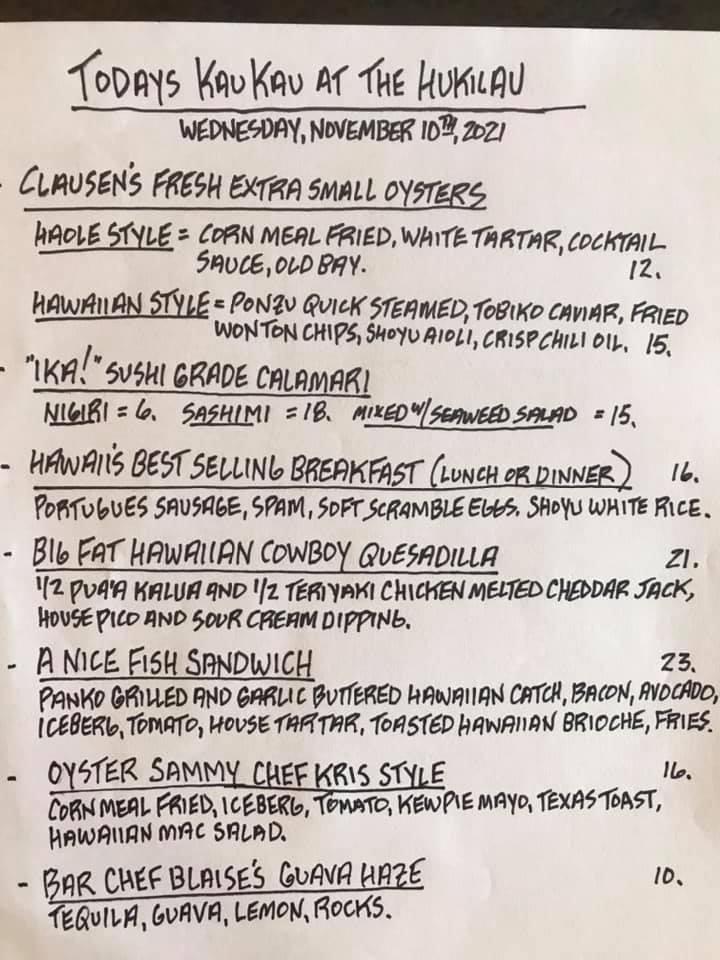 TODAYS KAUKAU AT THE HUKILAU
WEDNESDAY, NOVEMBER 10TH, 2021
- CLAUSEN'S FRESH EXTRA SMALL OYSTERS
HAOLE STYLE = CORN MEAL FRIED, WHITE TARTAR, COCKTAIL
SAUCE, OLD BAY. 12.
HAWAIIAN STYLE = PONZU QUICK STEAMED, TOBIKO CAVIAR, FRIED
WONTON CHIPS, SHOYU AIOLI, CRISP CHILI OIL. 15.
- "IKA!" SUSHI GRADE CALAMARI
NIGIRI = 6. SASHIMI = 18. MIXED W/ SEAWEED SALAD = 15.
- HAWAII'S BEST SELLING BREAKFAST (LUNCH OR DINNER) 16.
PORTUGUES SAUSAGE, SPAM, SOFT SCRAMBLE EGGS. SHOYU WHITE RICE.
- BIG FAT HAWAIIAN COWBOY QUESADILLA 21.
1/2 PUA'A KALUA AND 1/2 TERIYAKI CHICKEN MELTED CHEDDAR JACK,
HOUSE PICO AND SOUR CREAM DIPPING.
- A NICE FISH SANDWICH 23.
PANKO GRILLED AND GARLIC BUTTERED HAWAIIAN CATCH, BACON, AVOCADO,
ICEBERG, TOMATO, HOUSE TARTAR, TOASTED HAWAIIAN BRIOCHE, FRIES.
- OYSTER SAMMY CHEF KRIS STYLE 16.
CORN MEAL FRIED, ICEBERG, TOMATO, KEWPIE MAYO, TEXAS TOAST,
HAWAIIAN MAC SALAD.
- BAR CHEF BLAISE'S GUAVA HAZE 10.
TEQUILA, GUAVA, LEMON, ROCKS.